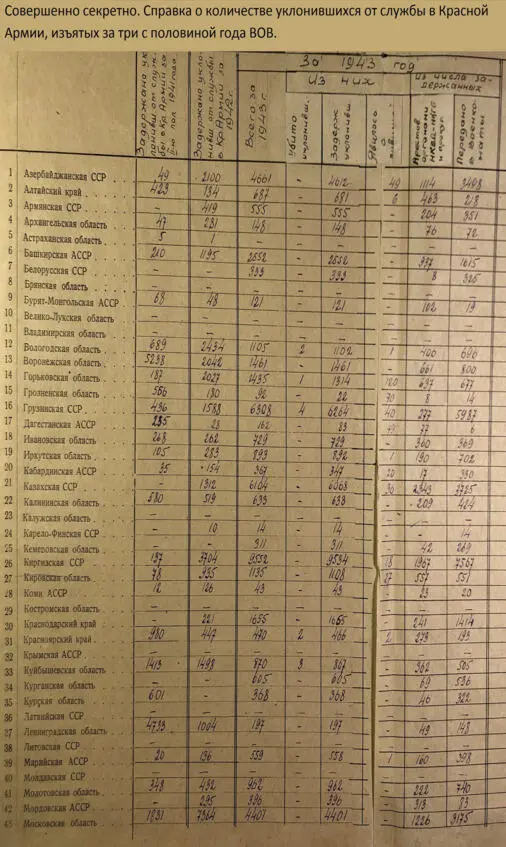 Совершенно секретно. Справка о количестве уклонившихся от службы в Красной
Армии, изъятых за три с половиной года ВОВ.
За 1943 год
Из них
Из числа задержанных
Задержано уклонивш. от службы в Кр. Армии за пол. 1941 года
Задержано уклонивш. от службы в Кр. Армии за 1942 г.
Всего за 1943 г.
Убито уклонивш.
Задерж. уклонивш.
Явилось
Передано в военкоматы
1 Азербайджанская ССР 49 2100 4661 - 4612 49 1114 3498
2 Алтайский край 423 134 687 - 681 6 463 218
3 Армянская ССР - 419 555 - 555 - 204 351
4 Архангельская область 47 281 148 - 148 - 76 72
5 Астраханская область 5 1 - - - - - -
6 Башкирская АССР 210 1195 2552 - 2552 - 937 1615
7 Белорусская ССР - - 333 - 333 - 8 325
8 Брянская область - - - - - - - -
9 Бурят-Монгольская АССР 68 48 121 - 121 - 102 19
10 Велико-Лукская область - - - - - - - -
11 Владимирская область - - - - - - - -
12 Вологодская область 689 2434 1105 2 1102 1 400
13 Воронежская область 5238 2042 1461 - 1461 - 661 800
14 Горьковская область 187 2027 1435 1 1314 120 637 677
15 Грозненская область 556 130 92 - 22 70 8 14
16 Грузинская ССР 436 1588 6308 4 6264 40 277 5987
17 Дагестанская АССР 235 23 162 - 83 77 6
18 Ивановская область 268 262 729 - 729 - 360 369
19 Иркутская область 105 283 893 - 892 1 190 702
20 Кабардинская АССР 35 154 367 - 347 20 17 330
21 Казахская ССР - 1312 6104 - 6068 2343 3725
22 Калининская область 519 633 - - 209 424
23 Калужская область - - - - - - - -
24 Карело-Финская ССР - 10 14 - 14 - - 14
25 Кемеровская область - - 311 - 311 - 42 269
26 Киргизская ССР 137 3704 9552 - 9534 18 1967 7567
27 Кировская область 78 935 1135 - 1108 27 557 551
28 Коми АССР 12 126 43 - 43 - 23 20
29 Костромская область - - - - - - - -
30 Краснодарский край - 221 1655 - 1655 - 241 1414
31 Красноярский край 980 447 470 2 466 2 273 193
32 Крымская АССР - - - - - - - -
33 Куйбышевская область 1413 1498 870 3 867 - 362 505
34 Курганская область - - 605 - 605 - 69 536
35 Курская область 601 - 368 - 368 - 46 322
36 Латвийская ССР - - - - - - - -
37 Ленинградская область 4733 1004 197 - 197 - 49 148
38 Литовская ССР - - - - - - - -
39 Марийская АССР 20 136 559 - 558 1 160 398
40 Молдавская ССР - - - - - - - -
41 Молотовская область 348 432 962 - 962 - 222 740
42 Мордовская АССР - 295 396 - 396 - 313 83
43 Московская область 1831 7364 4401 - 4401 - 1226 3175